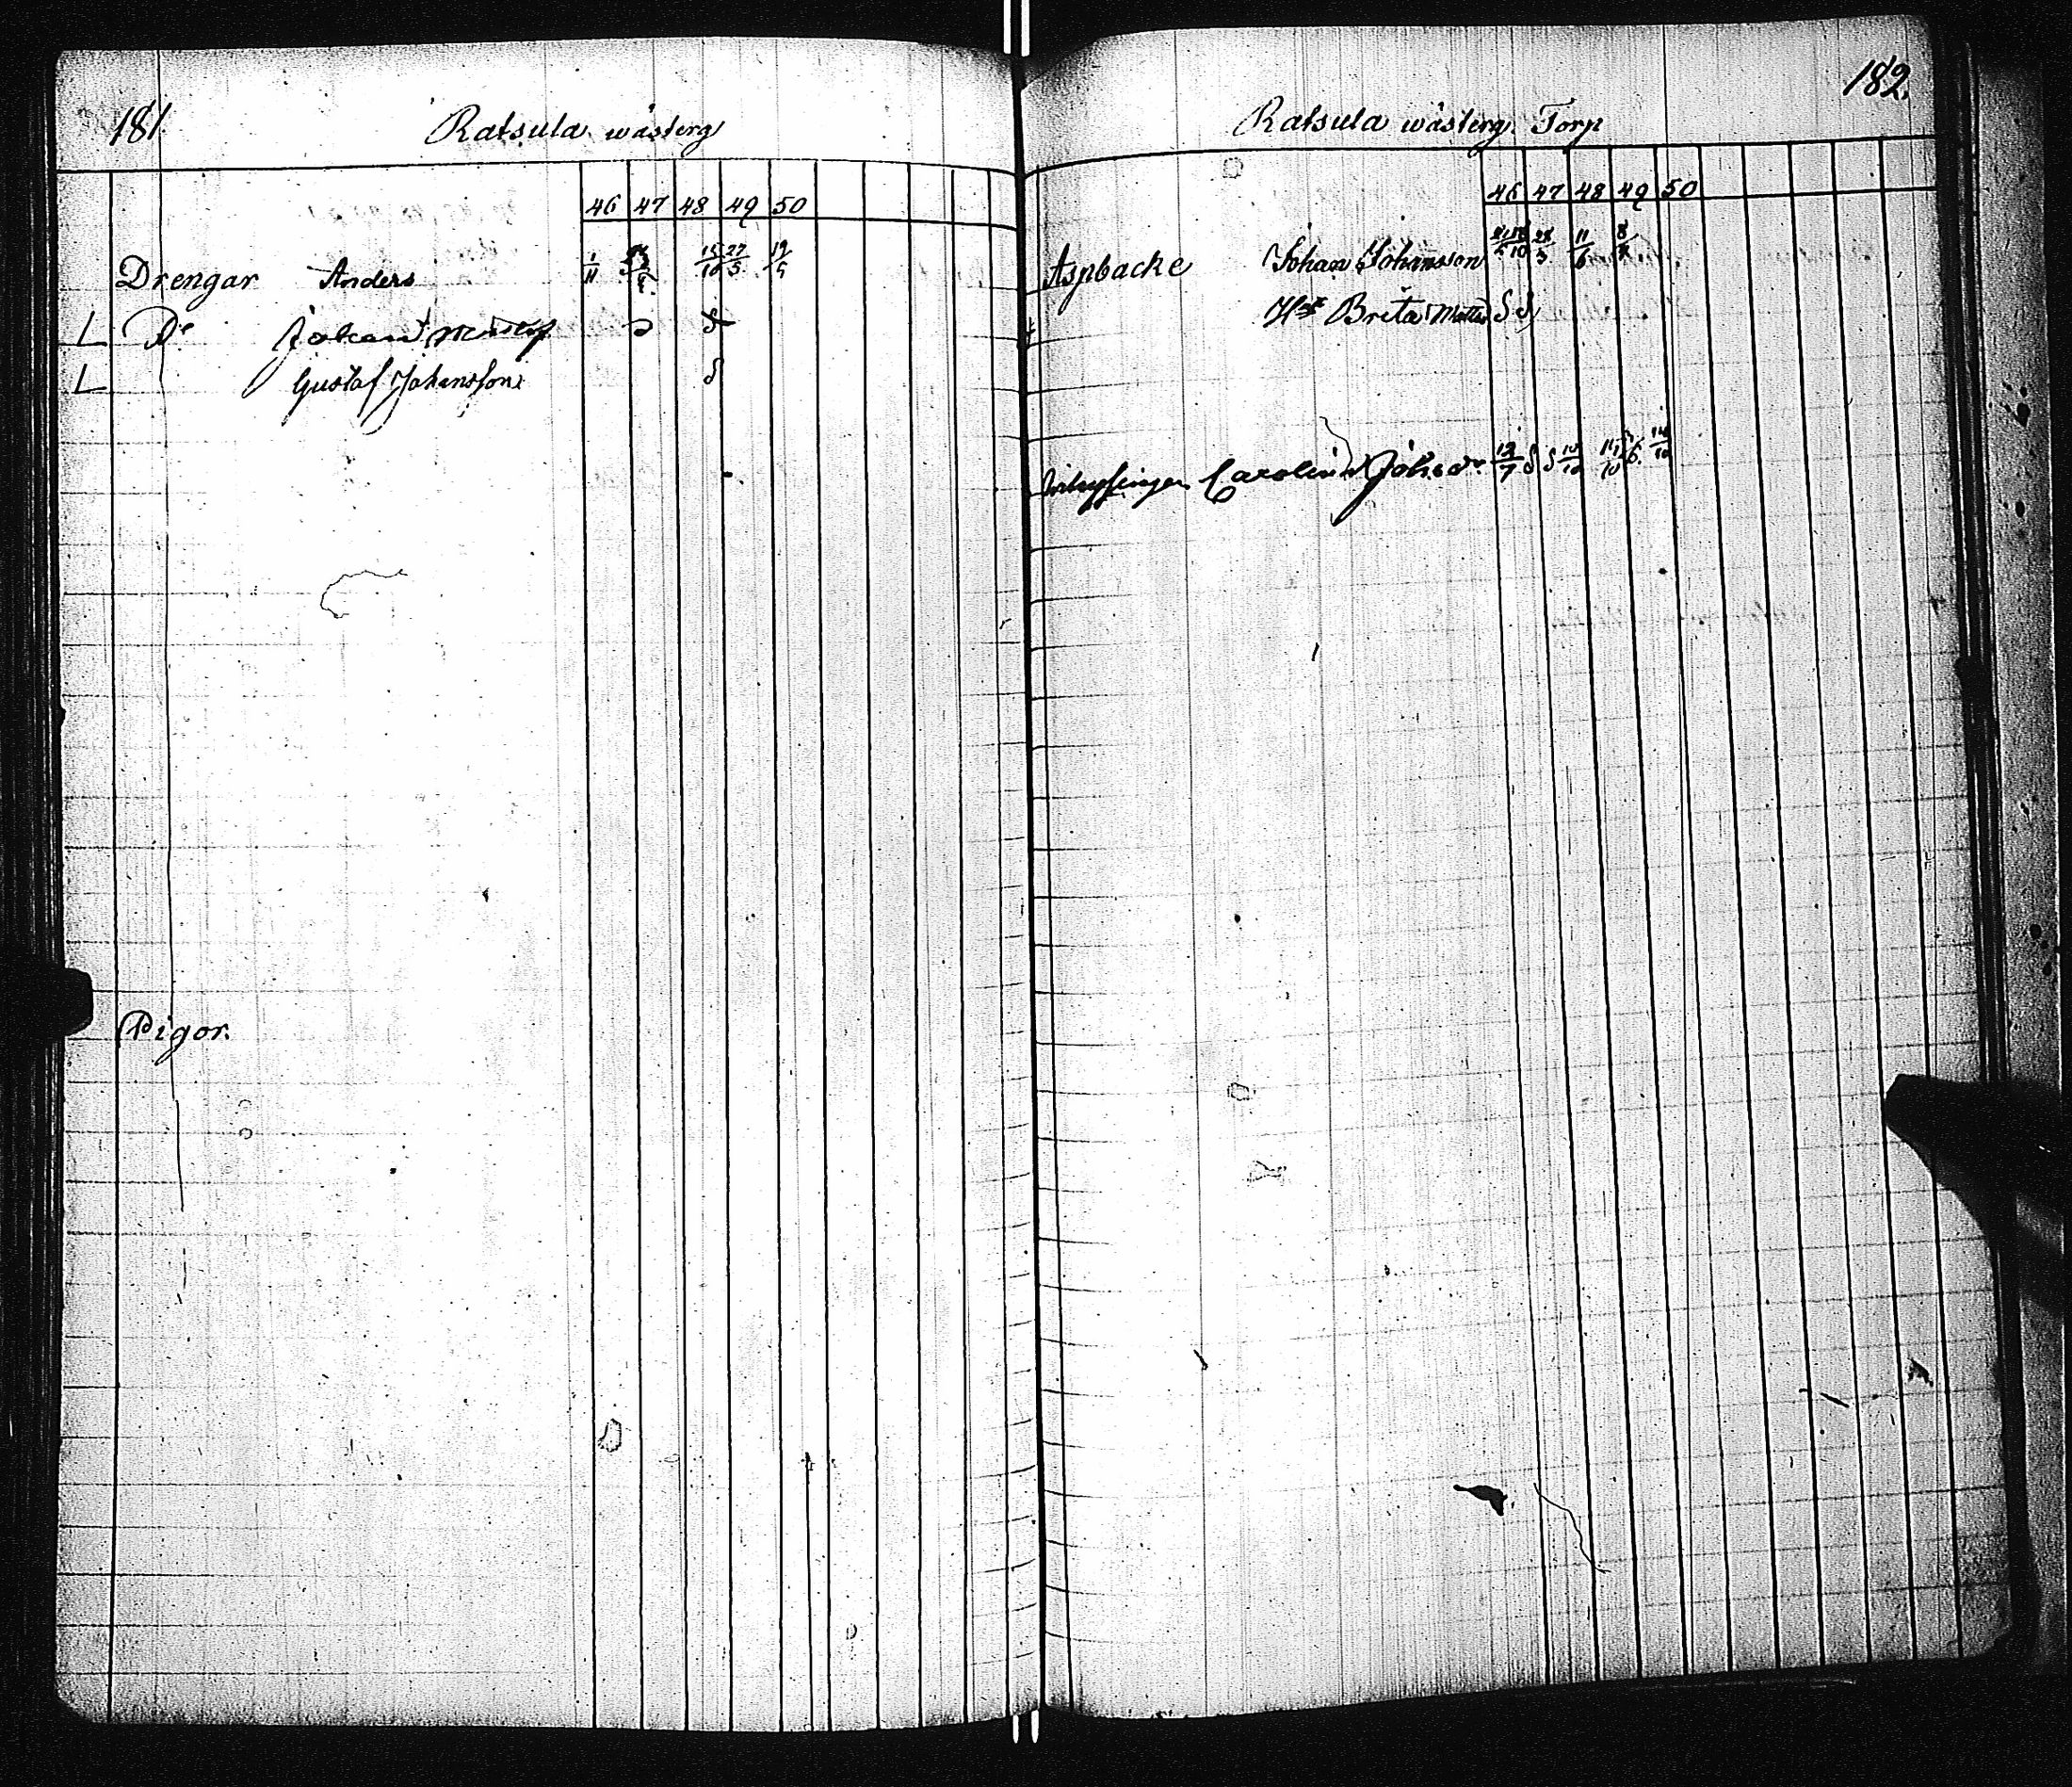 181.
Ratsula wästerg
46 47 48 49 50
Drengar Anders 1/11 15/10 27/5 19/5
L Do Johan
L Gustaf Johansson
Pigor.
182.
Ratsula wästerg. Torp
46 47 48 49 50
Aspbacke Johan Johansson 28/3 11/6 8/7
Hst Brita Matts
Carolina Johsdr 12/7 10/10 11/10 14/10